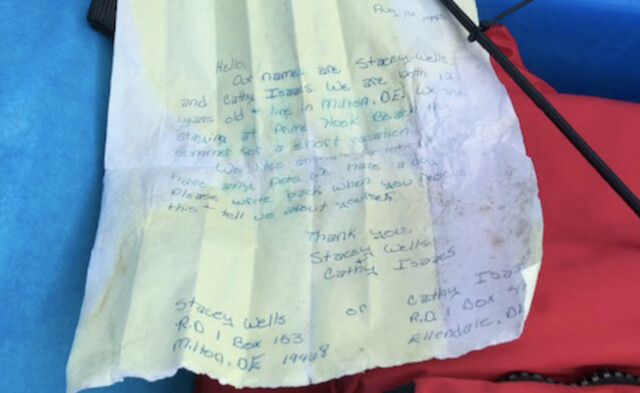 Hello,
Our names are Stacey Wells,
and Cathy Isaacs. We are both 12
years old + live in Milton, DE. We are
staying at Prime Hook Beach this
summer for a short vacation.
We like animals
have any pets we have a dog.
Please write back when you receive
this + tell us about yourself
Thank you,
Stacey Wells
+
Cathy Isaacs
Stacey Wells or Cathy Isaa
R.D 1 Box 153 R.D. 1 Box 4
Milton, DE 19968 Ellendale, D